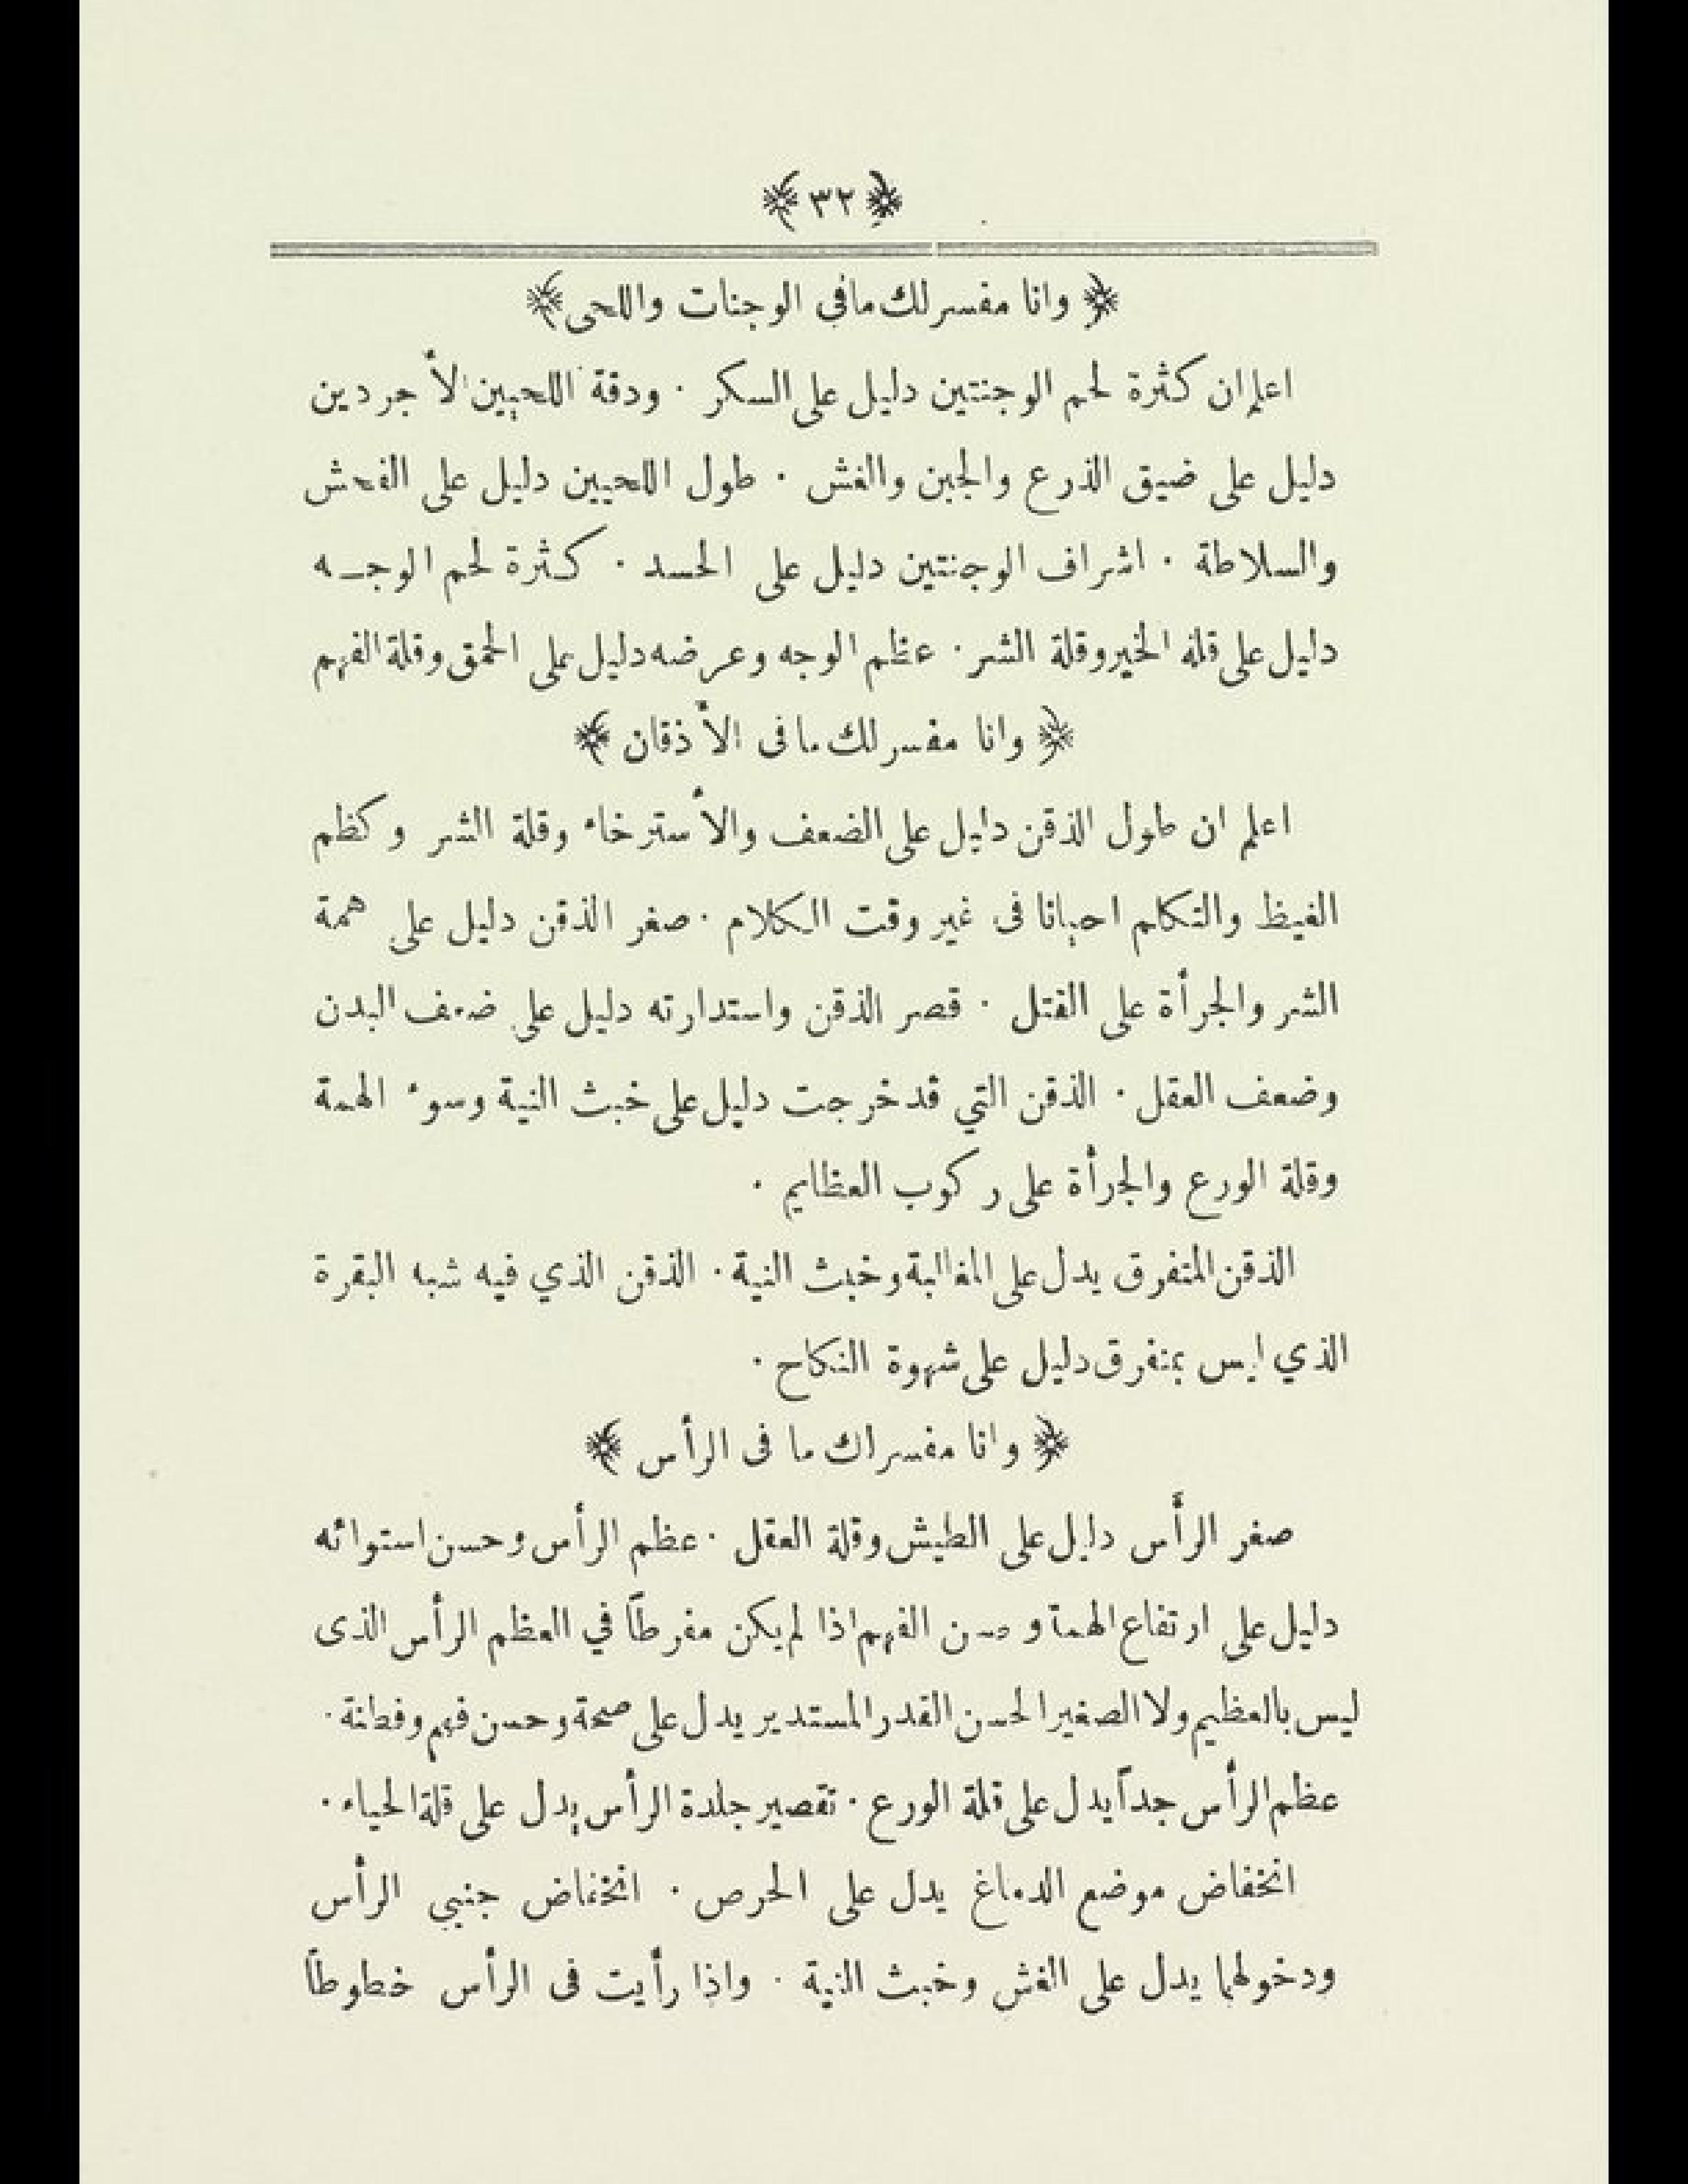 ﴿ ٣٢ ﴾
﴿ وانا مفسر لك ما في الوجنات واللحى ﴾
اعلم ان كثرة لحم الوجنتين دليل على السكر · ودقة اللحيين الأجردين
دليل على ضيق الذرع والجبن والغش · طول اللحيين دليل على الفحش
والسلاطة · اشراف الوجنتين دليل على الحسد · كثرة لحم الوجـه
دليل على قلة الخير وقلة الشر · عظم الوجه وعرضه دليل على الحمق وقلة الفهم
﴿ وانا مفسر لك ما فى الأذقان ﴾
اعلم ان طول الذقن دليل على الضعف والأسترخاء وقلة الشر وكظم
الغيظ والتكلم احيانا فى غير وقت الكلام · صغر الذقن دليل على همة
الشر والجرأة على القتل · قصر الذقن واستدارته دليل على ضعف البدن
وضعف العقل · الذقن التي قد خرجت دليل على خبث النية وسوء الهمة
وقلة الورع والجرأة على ركوب العظايم ·
الذقن المتفرق يدل على المغالبة وخبث النية · الذقن الذي فيه شبه البقرة
الذي ليس بمتفرق دليل على شهوة النكاح ·
﴿ وانا مفسر لك ما فى الرأس ﴾
صغر الرأس دليل على الطيش وقلة العقل · عظم الرأس وحسن استوائه
دليل على ارتفاع الهمة وحسن الفهم اذا لم يكن مفرطاً في العظم الرأس الذى
ليس بالعظيم ولا الصغير الحسن القدر المستدير يدل على صحة وحسن فهم وفطنة ·
عظم الرأس جداً يدل على قلة الورع · تقصير جلدة الرأس يدل على قلة الحياء ·
انخفاض موضع الدماغ يدل على الحرص · انخفاض جنبي الرأس
ودخولهما يدل على الغش وخبث النية · واذا رأيت فى الرأس خطوطاً